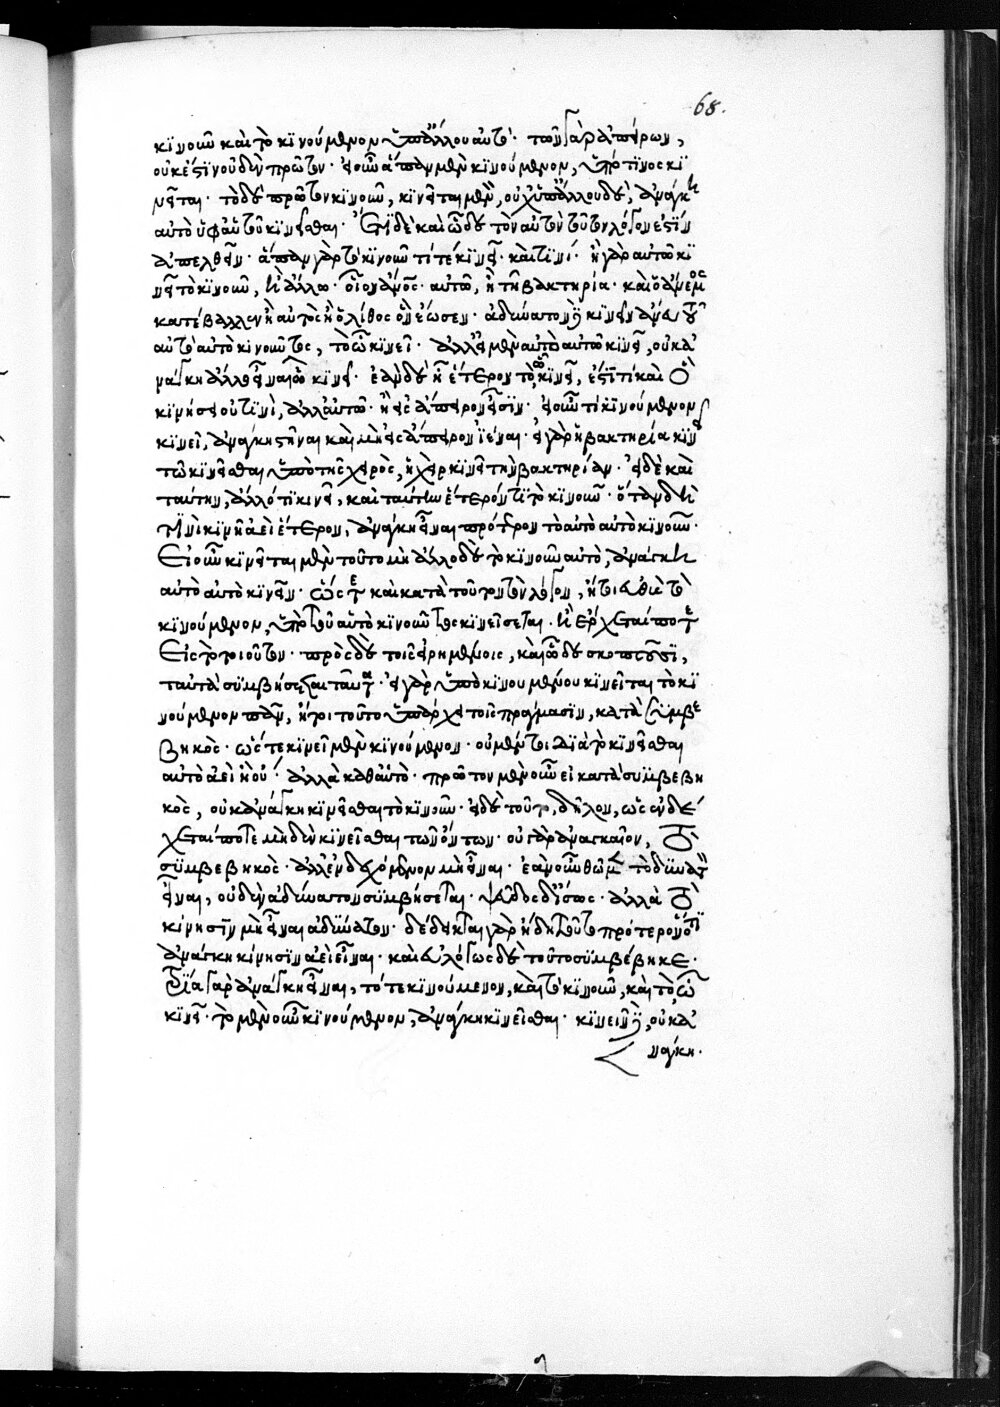 68.
κινοῦν καὶ τὸ κινούμενον ὑπ' ἄλλου αὐτό· τῶν γὰρ ἀπείρων,
οὐκ ἔστιν οὐδὲν πρῶτον· εἰ οὖν ἅπαν μὲν κινούμενον, ὑπό τινος κι
νεῖται· τὸ δὲ πρῶτον κινοῦν, κινεῖται μὲν, οὐχ ὑπ' ἄλλου δὲ, ἀνάγκη
αὐτὸ ὑφ' αὑτοῦ κινεῖσθαι· Ἔτι δὲ καὶ ὧδε τὸν αὐτὸν τοῦτον λόγον ἐστὶν
ἀπελθεῖν· ἅπαν γὰρ τὸ κινοῦν τί τε κινεῖ· καὶ τινί· ἢ γὰρ αὐτῶ κι
νεῖ τὸ κινοῦν, ἢ ἄλλω· οἷον ἄνος· αὐτῶ, ἢ τῆ βακτηρία· καὶ ὁ ἄνεμος
κατέβαλλεν ἢ αὐτὸς ἢ ὁ λίθος ὃν ἔωσεν· ἀδύνατον δὲ κινεῖν ἄνευ τοῦ
αὐτὸ αὐτὸ κινοῦντος, τὸ ᾧ κινεῖ· ἀλλ' εἰ μὲν αὐτὸ αὐτῶ κινεῖ, οὐκ ἀ
νάγκη ἄλλο εἶναι ᾧ κινεῖ· ἐὰν δὲ ἢ ἕτερον τὸ ᾧ κινεῖ, ἔστι τί καὶ ὃ
κινήσει οὐ τινὶ, ἀλλ' αὐτῶ· ἢ εἰς ἄπειρον εἶσιν· εἰ οὖν τι κινούμενον
κινεῖ, ἀνάγκη στῆναι καὶ μὴ εἰς ἄπειρον ϊέναι· εἰ γὰρ ἡ βακτηρία κινεῖ
τῶ κινεῖσθαι ὑπὸ τῆς χειρὸς, ἡ χεὶρ κινεῖ τὴν βακτηρίαν· εἰ δὲ καὶ
ταύτην, ἄλλό τι κινεῖ, καὶ ταύτην ἕτερόν τι τὸ κινοῦν· ὅταν δὲ
τινὶ κινῆ ἀεὶ ἕτερον, ἀνάγκη εἶναι πρότερον τὸ αὐτὸ αὑτὸ κινοῦν·
Εἰ οὖν κινεῖται μὲν τοῦτο μὴ ἄλλο δὲ τὸ κινοῦν αὐτό, ἀνάγκη
αὐτὸ αὑτὸ κινεῖν· ὥστε καὶ κατὰ τοῦτον τὸν λόγον, ἤτοι εὐθὺς τὸ
κινούμενον, ὑπὸ τοῦ αὑτὸ κινοῦντος κινεῖσεται· ἢ ἔρχεταί ποτε
Εἰς τὸ τοιοῦτον· πρὸς δὲ τοῖς εἰρημένοις, καὶ ὧδε σκοποῦσι,
ταὐτὰ συμβήσεται ταῦτα· εἰ γὰρ ὑπὸ κινουμένου κινεῖται τὸ κι
νούμενον πᾶν, ἤτοι τοῦτο ὑπάρχει τοῖς πράγμασιν, κατὰ συμβε
βηκὸς· ὥστε κινεῖ μὲν κινούμενον· οὐ μέντοι διὰ τὸ κινεῖσθαι
αὐτὸ ἀεὶ ἢ οὔ· ἀλλὰ καθ' αὑτό· πρῶτον μὲν οὖν εἰ κατὰ συμβεβη
κὸς, οὐκ ἀνάγκη κινεῖσθαι τὸ κινοῦν· εἰ δὲ τοῦτο, δῆλον, ὡς ἐνδέ
χεταί ποτε μηδὲν κινεῖσθαι τῶν ὄντων· οὐ γὰρ ἀναγκαῖον, τὸ
συμβεβηκὸς· ἀλλ' ἐνδεχόμενον μὴ εἶναι· ἐὰν οὖν θῶμεν τὸ δυνατὸν
εἶναι, οὐδὲν ἀδύνατον συμβήσεται· ψεῦδος δ' ἴσως· ἀλλὰ τὸ
κίνησιν μὴ εἶναι ἀδύνατον· δέδεικται γὰρ ἤδη τοῦτο πρότερον ὅτι
ἀνάγκη κίνησιν ἀεὶ εἶναι· καὶ εὐλόγως δὲ τοῦτο συμβέβηκε·
Τρία γὰρ ἀνάγκη εἶναι, τό τε κινούμενον, καὶ τὸ κινοῦν, καὶ τὸ ᾧ
κινεῖ· τὸ μὲν οὖν κινούμενον, ἀνάγκη κινεῖσθαι· κινεῖν δὲ, οὐκ ἀ
νάγκη·